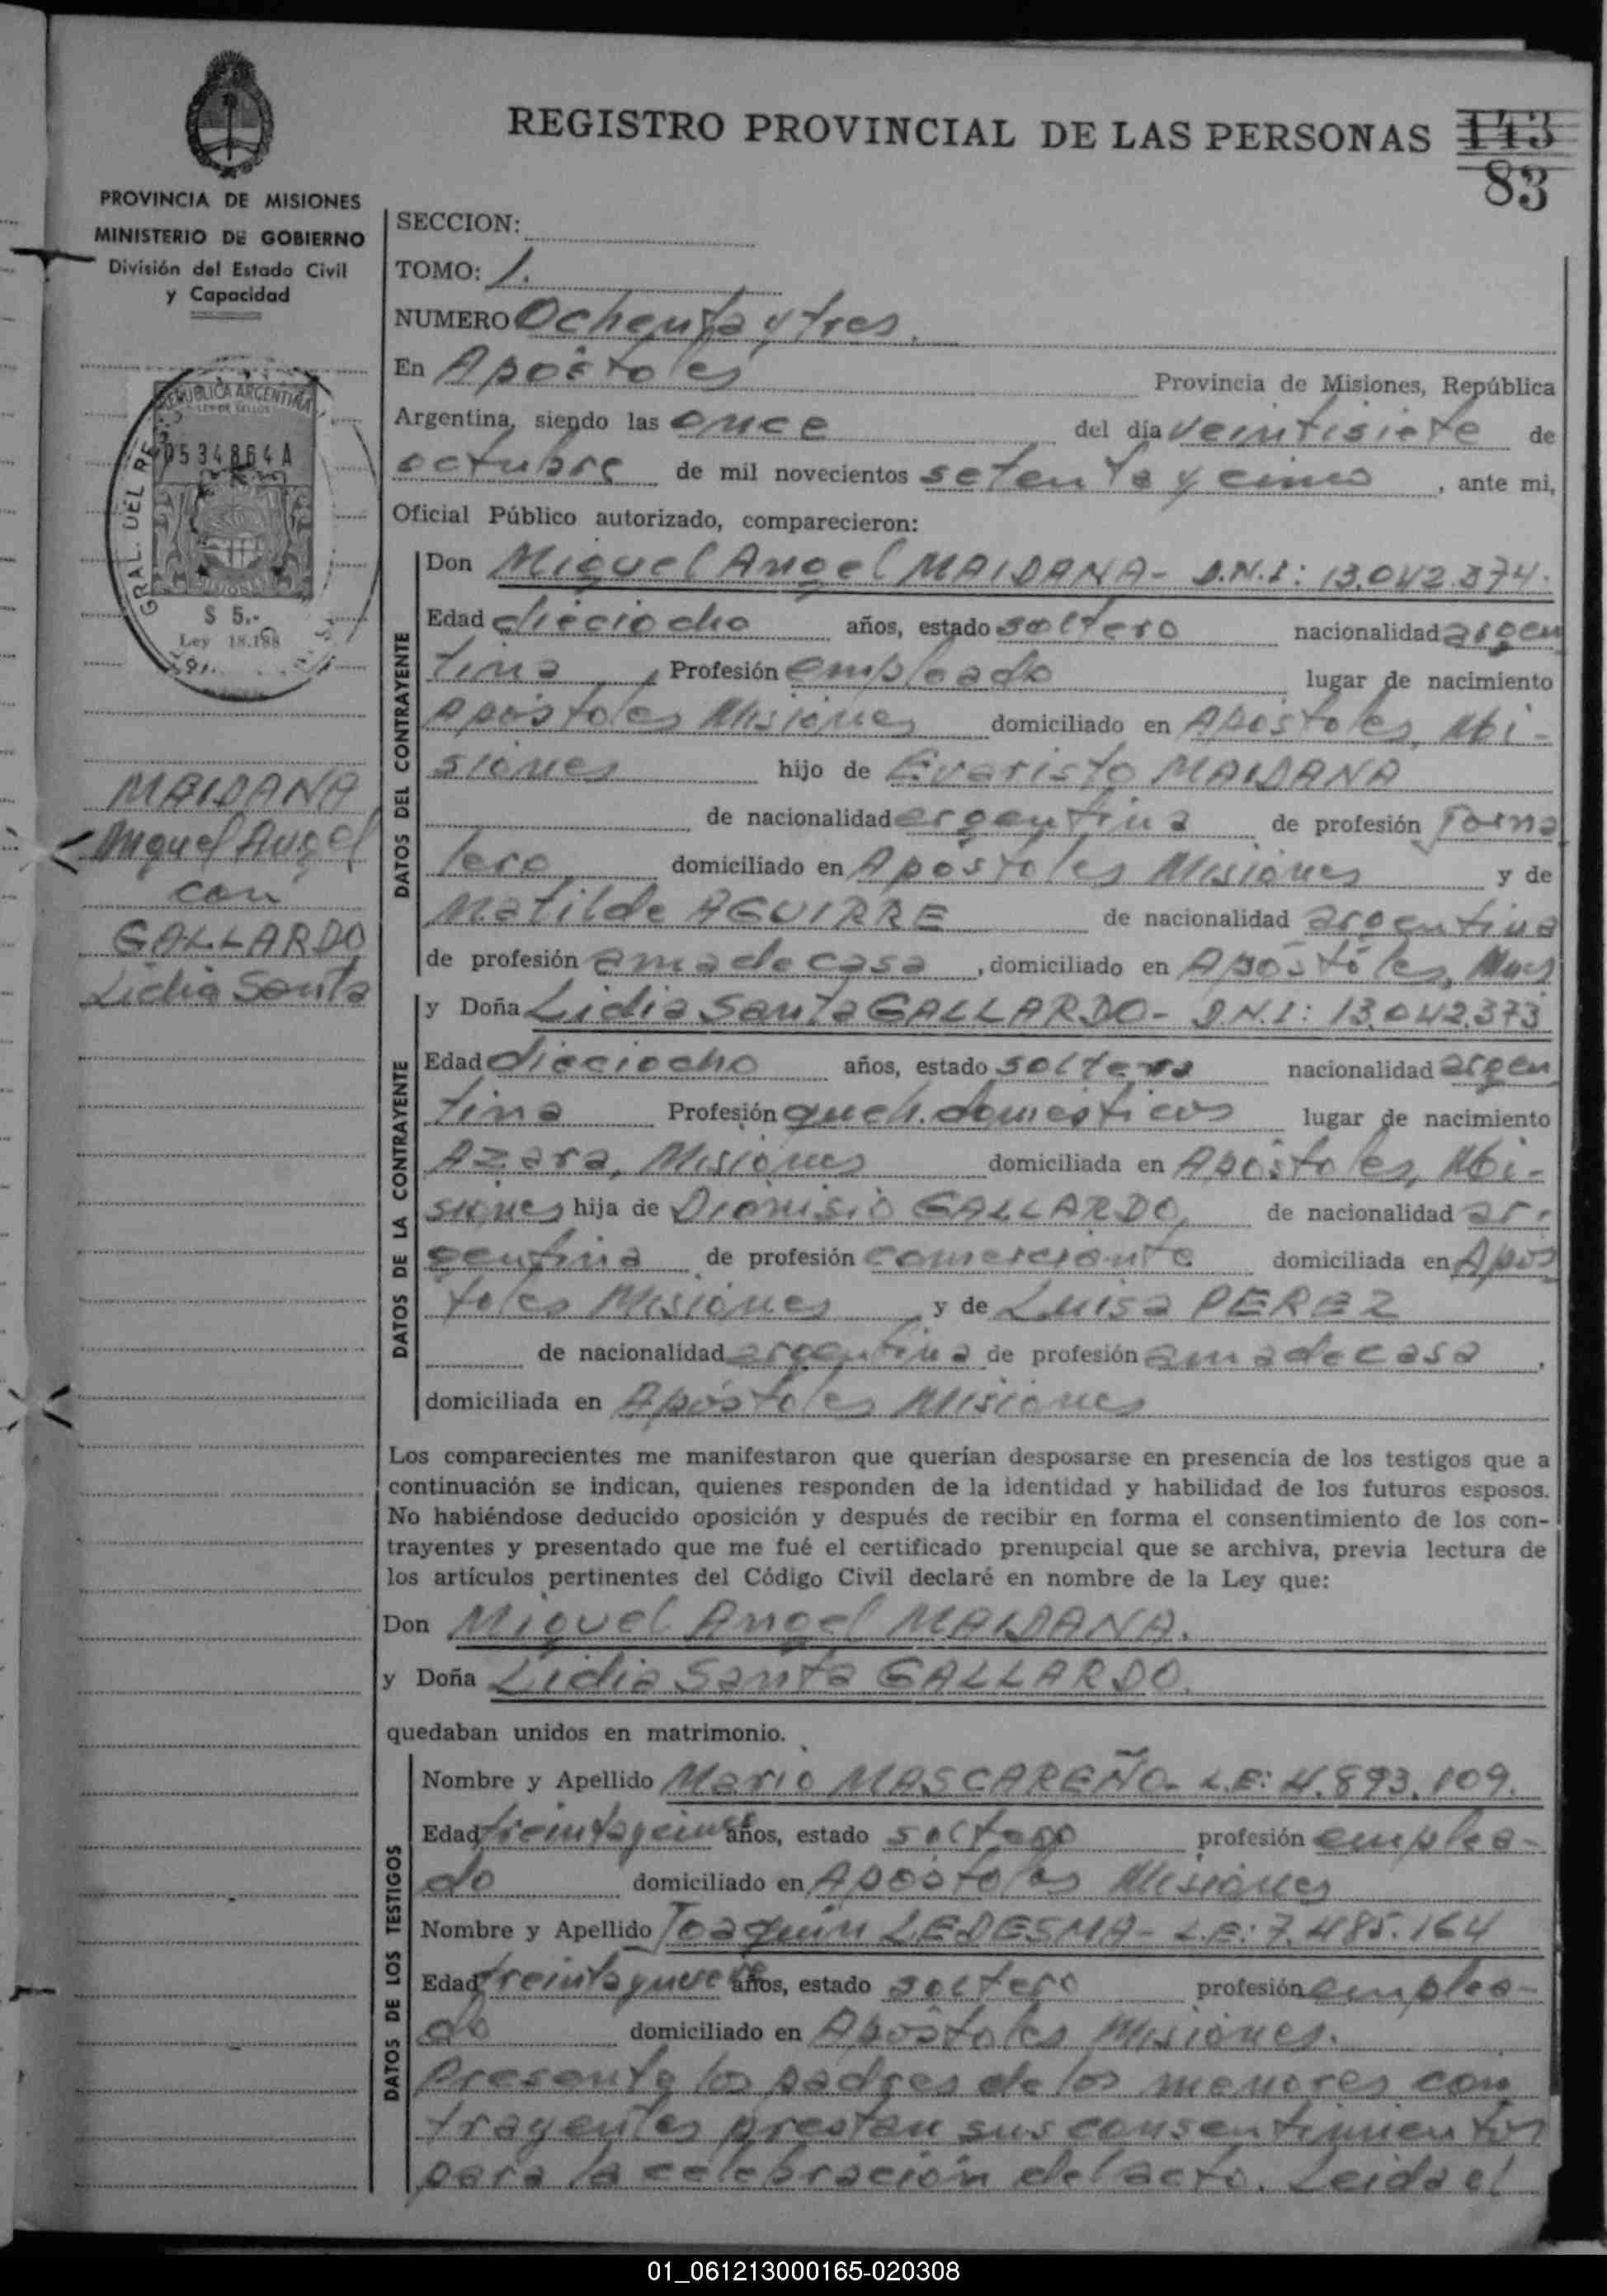 REGISTRO PROVINCIAL DE LAS PERSONAS 143
83
PROVINCIA DE MISIONES
MINISTERIO DE GOBIERNO
División del Estado Civil
y Capacidad
REPUBLICA ARGENTINA
LEY DE SELLOS
0534864 A
GRAL. DEL RE
MISIONES
$ 5.-
Ley 18.188
MAIDANA
Miguel Angel
con
GALLARDO
Lidia Santa
SECCION:
TOMO: 1.
NUMERO Ochenta y tres.
En Apóstoles Provincia de Misiones, República
Argentina, siendo las once del día veintisiete de
octubre de mil novecientos setenta y cinco, ante mi,
Oficial Público autorizado, comparecieron:
DATOS DEL CONTRAYENTE
Don Miguel Angel MAIDANA- D.N.I: 13.042.374.
Edad dieciocho años, estado soltero nacionalidad argen
tina, Profesión empleado lugar de nacimiento
Apóstoles Misiones domiciliado en Apóstoles, Mi-
siones hijo de Evaristo MAIDANA
de nacionalidad argentina de profesión Jorna
lero domiciliado en Apóstoles Misiones y de
Matilde AGUIRRE de nacionalidad argentina
de profesión ama de casa, domiciliado en Apóstoles, Mnes
DATOS DE LA CONTRAYENTE
y Doña Lidia Santa GALLARDO- D.N.I: 13.042.373
Edad dieciocho años, estado soltera nacionalidad argen
tina Profesión queh. domesticos lugar de nacimiento
Azara, Misiones domiciliada en Apóstoles, Mi-
siones hija de Dionisio GALLARDO, de nacionalidad ar-
gentina de profesión comerciante domiciliada en Após
toles Misiones y de Luisa PEREZ
de nacionalidad argentina de profesión ama de casa,
domiciliada en Apóstoles Misiones
Los comparecientes me manifestaron que querían desposarse en presencia de los testigos que a
continuación se indican, quienes responden de la identidad y habilidad de los futuros esposos.
No habiéndose deducido oposición y después de recibir en forma el consentimiento de los con-
trayentes y presentado que me fué el certificado prenupcial que se archiva, previa lectura de
los artículos pertinentes del Código Civil declaré en nombre de la Ley que:
Don Miguel Angel MAIDANA.
y Doña Lidia Santa GALLARDO.
quedaban unidos en matrimonio.
DATOS DE LOS TESTIGOS
Nombre y Apellido Mario MASCAREÑO- L.E: 4.893.109.
Edad treinta y cinco años, estado soltero profesión emplea-
do domiciliado en Apóstoles Misiones
Nombre y Apellido Joaquín LEDESMA- L.E: 7.485.164
Edad treinta y nueve años, estado soltero profesión emplea-
do domiciliado en Apóstoles Misiones.
Presente los padres de los menores con
trayentes prestan sus consentimientos
para la celebración del acto. Leida el
01_061213000165-020308